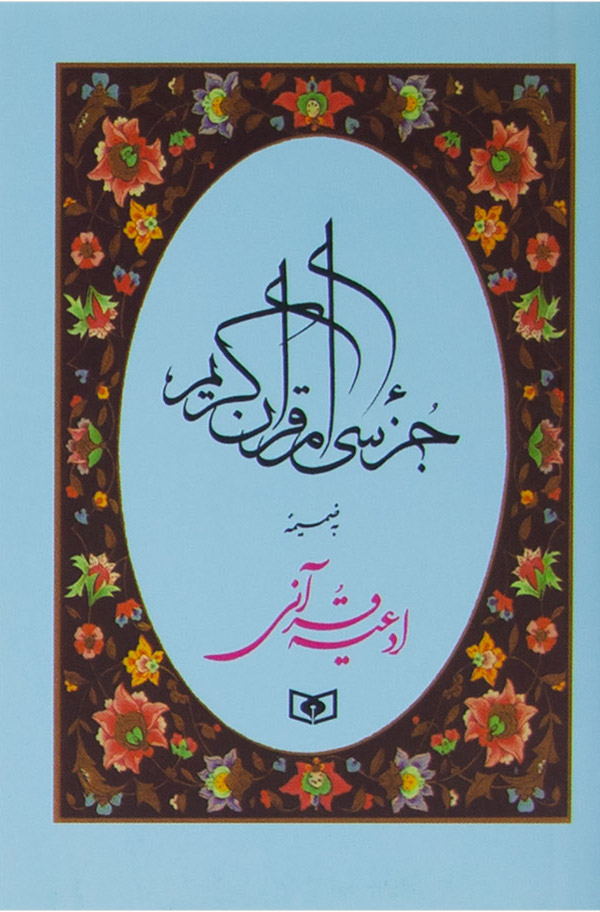 جُزء سی ام قرآن کریم
به ضمیمهٔ
ادعیه قُرآنی